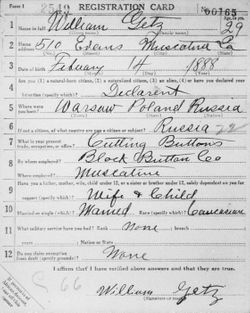 Form 1 REGISTRATION CARD No. 00165
1 Name in full William Getz 29
2 Home address 510 Evans Muscatine Ia
3 Date of birth Febuary 14 1888
4 Are you (1) a natural-born citizen, (2) a naturalized citizen, (3) an alien, (4) or have you declared your intention (specify which)?
Declarent
5 Where were you born? Warsaw Poland Russia
6 If not a citizen, of what country are you a citizen or subject? Russia
7 What is your present trade, occupation, or office? Cutting Buttons
8 By whom employed? Block Button Co
Where employed? Muscatine
9 Have you a father, mother, wife, child under 12, or a sister or brother under 12, solely dependent on you for support (specify which)? Wife & Child
10 Married or single (which)? Married Race (specify which)? Caucasian
11 What military service have you had? Rank None
years Nation or State
12 Do you claim exemption from draft (specify grounds)? None
I affirm that I have verified above answers and that they are true.
66
William Getz